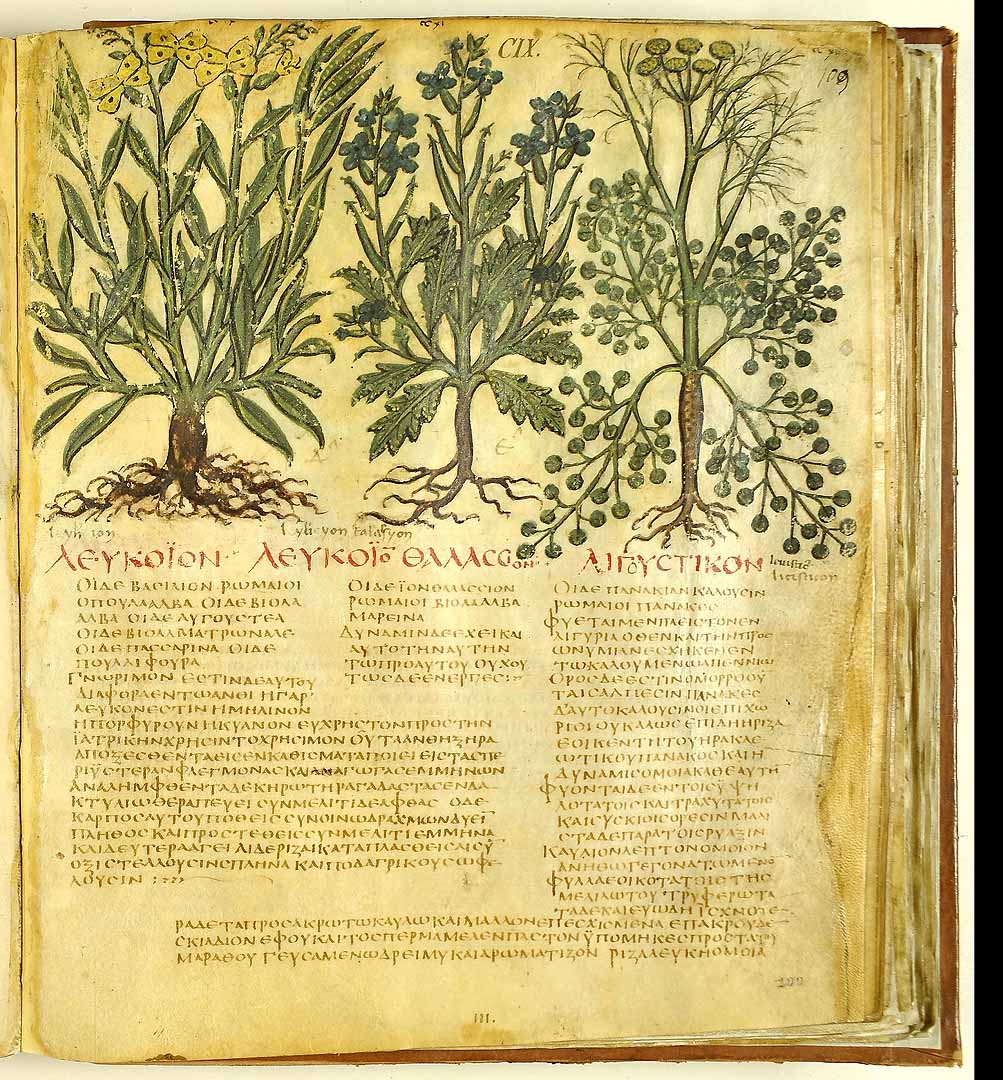 CIX.
109
ΛΕΥΚΟΪΟΝ· ΛΕΥΚΟΪΟ̄ ΘΑΛΑΣΣΙΟΝ· ΛΙΓΟΥΣΤΙΚΟΝ
ΟΙΔΕ ΒΑΣΙΛΙΟΝ ΡΩΜΑΙΟΙ
ΟΠΟΥΛΑΛΒΑ ΟΙΔΕ ΒΙΟΛΑ
ΑΛΒΑ ΟΙΔΕ ΑΥΓΟΥΣΤΕΑ
ΟΙΔΕ ΒΙΟΛΑ ΜΑΤΡΩΝΑΛΕ
ΟΙΔΕ ΠΑΣΣΑΡΙΝΑ ΟΙΔΕ
ΠΟΥΛΛΙ ΦΟΥΡΑ
ΓΝΩΡΙΜΟΝ ΕΣΤΙΝ ΔΕ ΑΥΤΟΥ
ΔΙΑΦΟΡΑ ΕΝ ΤΩ ΑΝΘΙ Η ΓΑΡ
ΛΕΥΚΟΝ ΕΣΤΙΝ Η ΜΗΛΙΝΟΝ
Η ΠΟΡΦΥΡΟΥΝ Η ΚΥΑΝΟΝ ΕΥΧΡΗΣΤΟΝ ΠΡΟΣ ΤΗΝ
ΪΑΤΡΙΚΗΝ ΧΡΗΣΙΝ ΤΟ ΧΡΗΣΙΜΟΝ ΟΥ ΤΑ ΑΝΘΗ ΞΗΡΑ
ΑΠΟΖΕΣΘΕΝΤΑ ΕΙΣ ΕΝΚΑΘΙΣΜΑΤΑ ΠΟΙΕΙ ΕΙΣ ΤΑΣ ΠΕ
ΡΙ ΫΣΤΕΡΑΝ ΦΛΕΓΜΟΝΑΣ ΚΑΙ ΑΝΑΓΩΓΑΣ ΕΜΜΗΝΩΝ
ΑΝΑΛΗΜΦΘΕΝΤΑ ΔΕ ΚΗΡΩΤΗ ΡΑΓΑΔΑΣ ΤΑΣ ΕΝ ΔΑ
ΚΤΥΛΙΩ ΘΕΡΑΠΕΥΕΙ ΣΥΝ ΜΕΛΙΤΙ ΔΕ ΑΦΘΑΣ ΟΔΕ
ΚΑΡΠΟΣ ΑΥΤΟΥ ΠΟΘΕΙΣ ΣΥΝ ΟΙΝΩ ΔΡΑΧΜΩΝ ΔΥΕΙ
ΠΛΗΘΟΣ ΚΑΙ ΠΡΟΣΤΕΘΕΙΣ ΣΥΝ ΜΕΛΙΤΙ ΕΜΜΗΝΑ
ΚΑΙ ΔΕΥΤΕΡΑ ΑΓΕΙ ΑΙ ΔΕ ΡΙΖΑΙ ΚΑΤΑΠΛΑΣΘΕΙΣΑΙ ΣῩ
ΟΞΙ ΣΤΕΛΛΟΥΣΙΝ ΣΠΛΗΝΑ ΚΑΙ ΠΟΔΑΓΡΙΚΟΥΣ ΩΦΕ
ΛΟΥΣΙΝ
ΟΙΔΕ ΪΟΝ ΘΑΛΑΣΣΙΟΝ
ΡΩΜΑΙΟΙ ΒΙΟΛΑ ΑΛΒΑ
ΜΑΡΕΙΝΑ
ΔΥΝΑΜΙΝ ΔΕ ΕΧΕΙ ΚΑΙ
ΑΥΤΟ ΤΗΝ ΑΥΤΗΝ
ΤΩ ΠΡΟ ΑΥΤΟΥ ΟΥΧ ΟΥ
ΤΩΣ ΔΕ ΕΝΕΡΓΕΣ
ΟΙΔΕ ΠΑΝΑΚΙΑΝ ΚΑΛΟΥΣΙΝ
ΡΩΜΑΙΟΙ ΠΑΝΑΚΕΣ
ΦΥΕΤΑΙ ΜΕΝ ΠΛΕΙΣΤΟΝ ΕΝ
ΛΙΓΥΡΙΑ ΟΘΕΝ ΚΑΙ ΤΗΝ ΠΡΟΣ
ΩΝΥΜΙΑΝ ΕΣΧΗΚΕΝ ΕΝ
ΤΩ ΚΑΛΟΥΜΕΝΩ ΑΠΕΝΝΙΩ
ΟΡΟΣ ΔΕ ΕΣΤΙΝ ΟΜΟΡΡΟΟΥ
ΤΑΙΣ ΑΛΠΕΣΙΝ ΠΑΝΑΚΕΣ
Δ ΑΥΤΟ ΚΑΛΟΥΣΙΝ ΟΙ ΕΠΙΧΩ
ΡΙΟΙ ΟΥΚ ΑΛΩΣ ΕΠΙ Δ Η ΡΙΖΑ
ΕΟΙΚΕΝ ΤΗ ΤΟΥ ΗΡΑΚΛΕ
ΩΤΙΚΟΥ ΠΑΝΑΚΟΣ ΚΑΙ Η
ΔΥΝΑΜΙΣ ΟΜΟΙΑ ΚΑΘΕΑΥΤΗ
ΦΥΟΝΤΑΙ ΔΕ ΕΝ ΤΟΙΣ ΫΨΗ
ΛΟΤΑΤΟΙΣ ΚΑΙ ΤΡΑΧΥΤΑΤΟΙΣ
ΚΑΙ ΣΥΣΚΙΟΙΣ ΟΡΕΣΙΝ ΜΑΛΙ
ΣΤΑ ΔΕ ΠΑΡΑ ΤΟΙΣ ΡΥΑΞΙΝ
ΚΑΥΛΙΟΝ ΛΕΠΤΟΝ ΟΜΟΙΟΝ
ΑΝΗΘΩ ΓΕΓΟΝΑΤΩΜΕΝΟ
ΦΥΛΛΑ ΕΟΙΚΟΤΑ ΤΟΙΣ ΤΗΣ
ΜΕΛΙΛΩΤΟΥ ΤΡΥΦΕΡΩΤΑ
ΤΑ ΔΕ ΚΑΙ ΕΥΩΔΗ ΪΣΧΝΟΤΕ
ΡΑ ΔΕ ΤΑ ΠΡΟΣ ΑΚΡΩ ΤΩ ΚΑΥΛΩ ΚΑΙ ΜΑΛΛΟΝ ΕΠΕΣΧΙΣΜΕΝΑ ΕΠ ΑΚΡΟΥ ΔΕ
ΣΚΙΑΔΙΟΝ ΕΦ ΟΥ ΚΑΙ ΤΟ ΣΠΕΡΜΑ ΜΕΛΕΝ ΠΑΣΤΟΝ ΫΠΟΜΗΚΕΣ ΠΡΟΣ ΤΑ ΤΟΥ
ΜΑΡΑΘΟΥ ΓΕΥΣΑΜΕΝΩ ΔΡΕΙΜΥ ΚΑΙ ΑΡΩΜΑΤΙΖΟΝ ΡΙΖΑ ΛΕΥΚΗ ΟΜΟΙΑ
III.